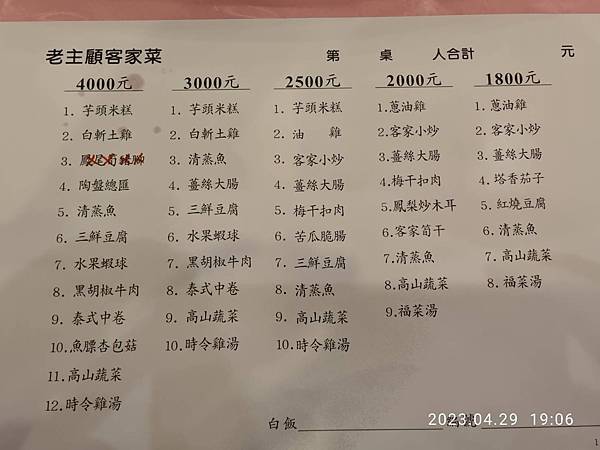 老主顧客家菜 第 桌 人合計 元
4000元 3000元 2500元 2000元 1800元
1. 芋頭米糕 1. 芋頭米糕 1. 芋頭米糕 1.蔥油雞 1. 蔥油雞
2. 白斬土雞 2. 白斬土雞 2. 油 雞 2.客家小炒 2. 客家小炒
3. 3. 清蒸魚 3. 客家小炒 3.薑絲大腸 3.薑絲大腸
4. 陶盤總匯 4. 薑絲大腸 4.薑絲大腸 4.梅干扣肉 4. 塔香茄子
5. 清蒸魚 5. 三鮮豆腐 5. 梅干扣肉 5.鳳梨炒木耳 5. 紅燒豆腐
6. 三鮮豆腐 6. 水果蝦球 6. 苦瓜脆腸 6.客家筍干 6. 清蒸魚
7. 水果蝦球 7. 黑胡椒牛肉 7. 三鮮豆腐 7.清蒸魚 7. 高山蔬菜
8. 黑胡椒牛肉 8. 泰式中卷 8. 清蒸魚 8.高山蔬菜 8. 福菜湯
9. 泰式中卷 9. 高山蔬菜 9. 高山蔬菜 9.福菜湯
10. 魚膘杏包菇 10. 時令雞湯 10.時令雞湯
11. 高山蔬菜
12. 時令雞湯
白飯
2023.04.29 19:06
1